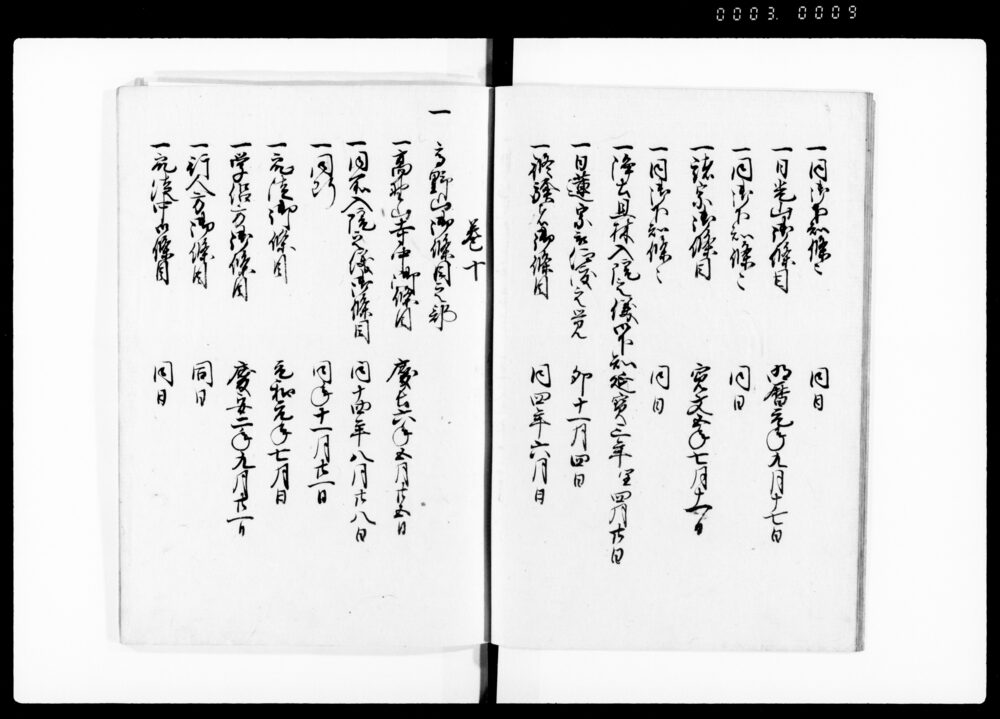 0003 0009
一同御下知條々 同日
一日光山御條目 明暦元年九月十七日
一同御下知條々 同日
一諸宗御條目 寛文五年七月十一日
一同御下知條々 同日
一浄土且林入院之儀御下知 延宝三年 四月廿日
一日蓮宗 之覚 卯十一月四日
一修験者御條目 同四年六月日
巻十
一 高野山御條目之部
一高野山寺中御條目 慶長六年五月廿五日
一同 入院之儀御條目 同十四年八月廿八日
一同断 同年十一月廿一日
一衆徒御條目 元和元年七月日
一学侶方御條目 慶安二年九月廿一日
一行人方御條目 同日
一衆徒中御條目 同日